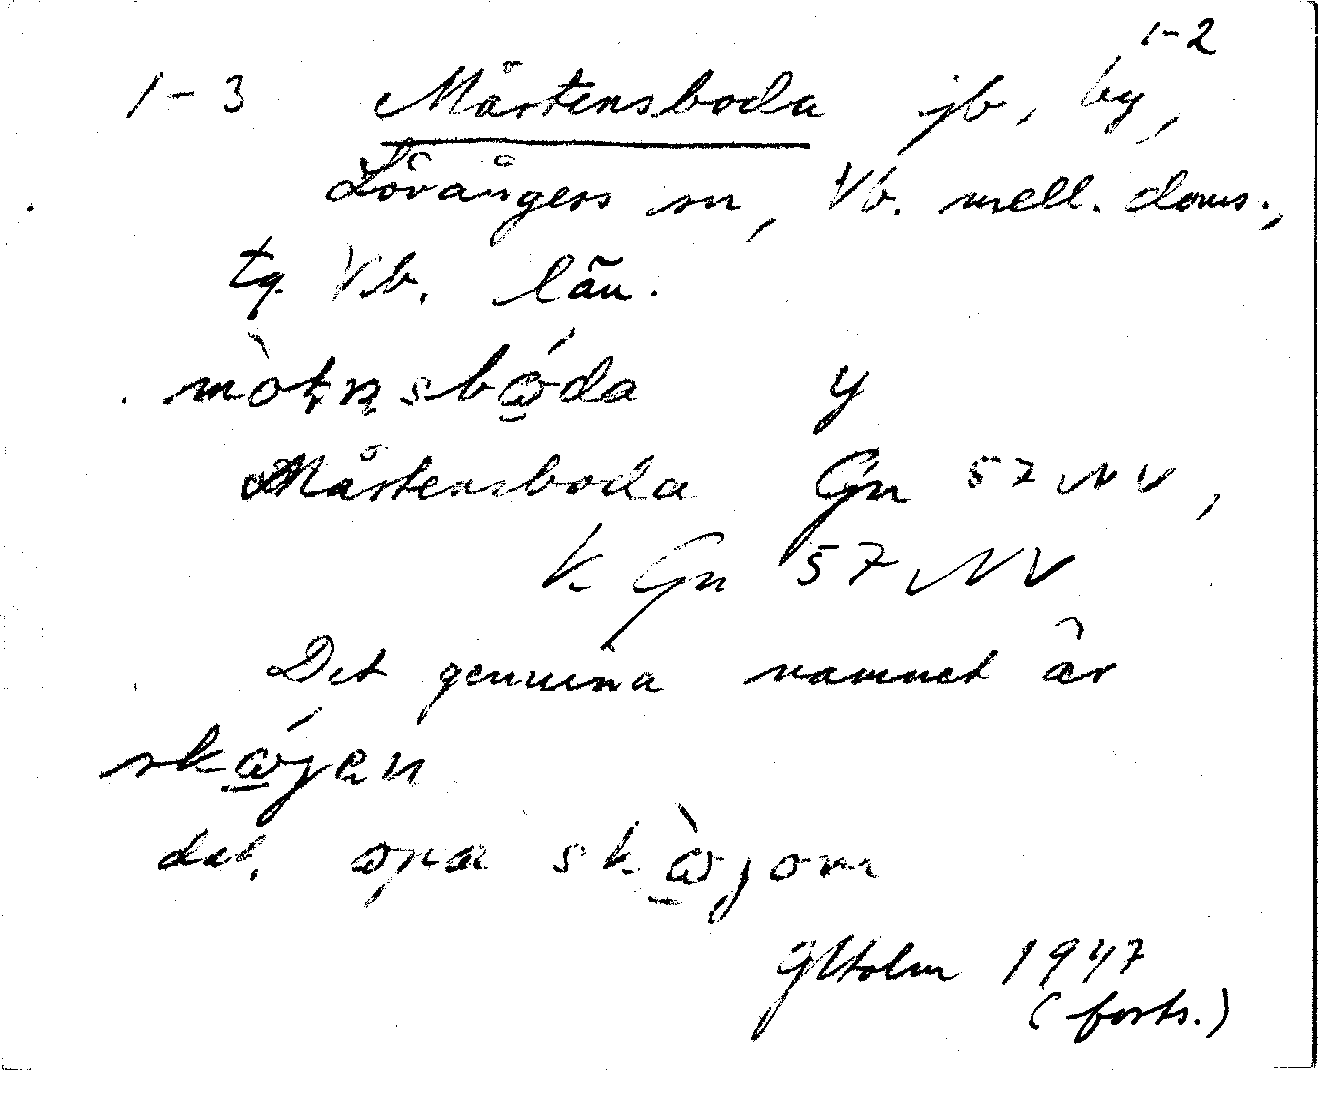 1-2
1-3 Mårtensboda jb, by,
Lövångers sn, Vb. mell. doms.,
tg Vb. län.
mòţņsbώ̲da y
Mårtensboda Gn 57 NV,
k Gn 57 NV
Det genuina namnet är
skώ̲jen
dat. opa skὼ̲jom
GHolm 1947
(forts.)